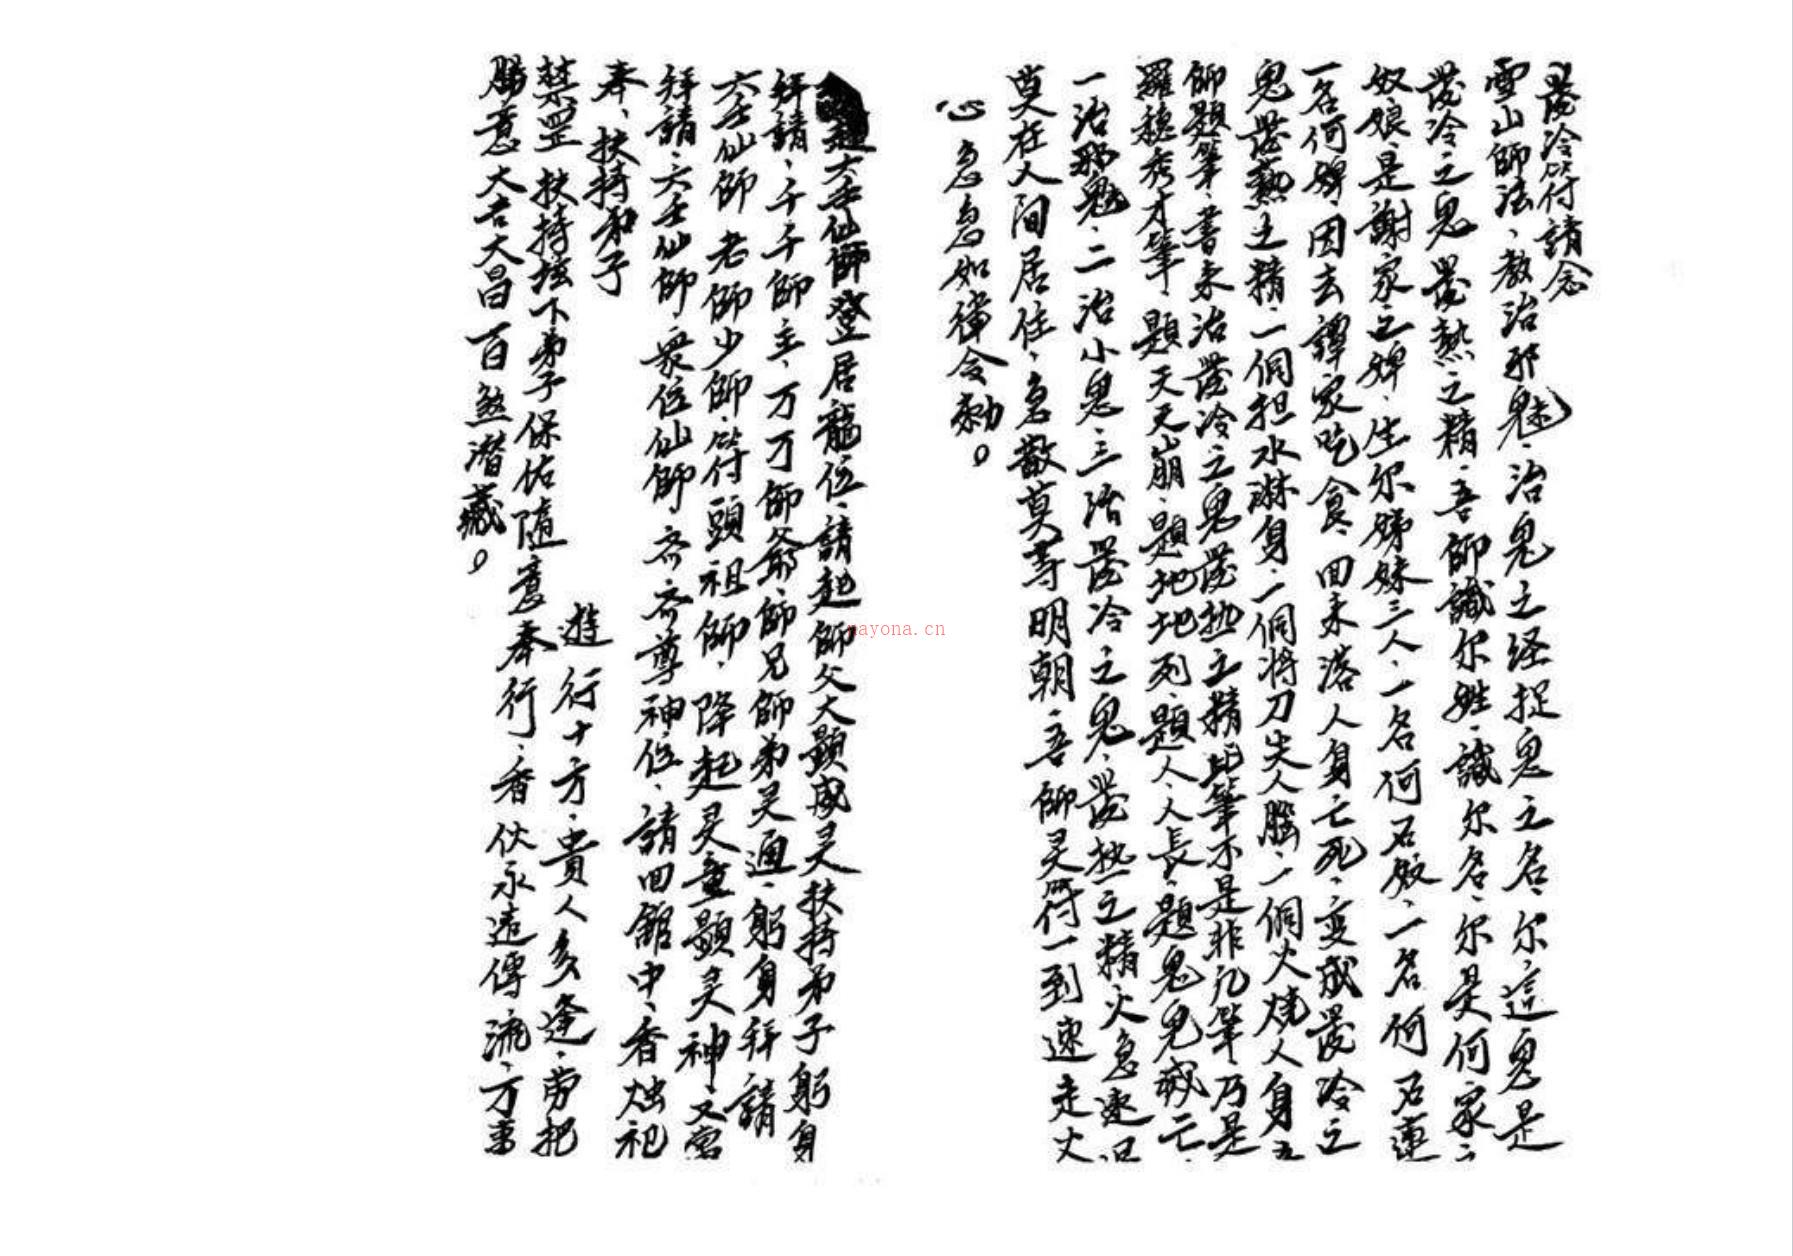 發冷符請念
雪山師法、教治邪魅、治鬼之经捉鬼之名、尔這鬼是
發冷之鬼發熱之精、吾師識尔姓、識尔名、尔是何家之
奴娘、是謝家之婢、生尔姊妹三人、一名何石奴、一名何石蓮
一名何婢、因去譚家吃食、回来落人身亡死、变成發冷之
鬼發熱之精、一個担水淋身、一個将刀失人腦、一個火燒人身、五
師題筆、書来治發冷之鬼發热之精、此筆不是非凡筆、乃是
羅穗秀才筆、題天天崩、題地地死、題人人長、題鬼鬼滅亡、
一治邪魅、二治小鬼、三治發冷之鬼、發热之精、火急速退
莫在人间居住、急散莫等明朝、吾師灵符一到速走火
急急如律令勅。
六壬仙師登居龍位、請起師父大顯威灵扶持弟子躬身
拜請、千千師主、万万師爺、師兄師弟灵通、躬身拜請
六壬仙師老師少師、符頭祖師、降起灵童顯灵神、又當
拜請、六壬仙師、眾位仙師齐齐尊神位、請回館中、香烛祀
奉、扶持弟子
遊行十方、貴人多逢、劳把
禁罡扶持坛下弟子保佑隨意奉行、香伙永遠傳流、万事
勝意大吉大昌百煞潜藏。
nayona.cn